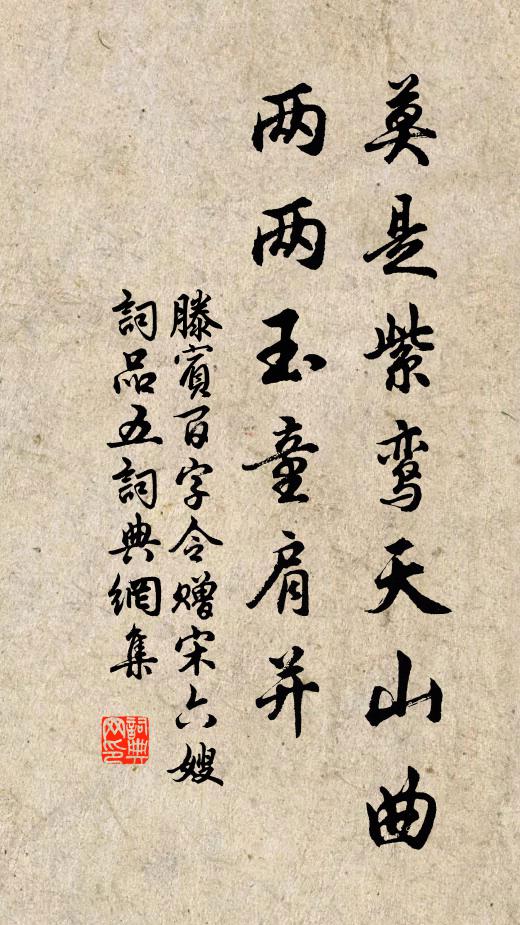 莫是紫鸾天山曲
两两玉童肩并
滕賓百字令赠宋六嫂
詞品五詞典網集
詞典网印